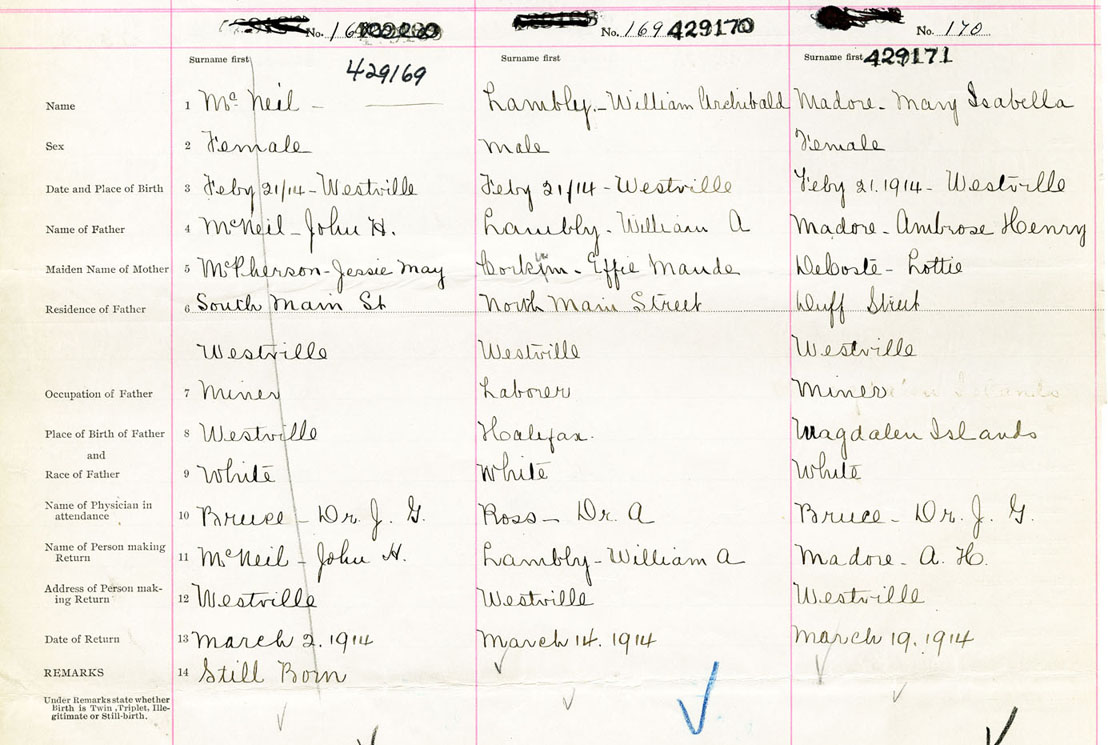 No. 169 429170 No. 170
Surname first Surname first Surname first 429171
429169
Name 1 Mc Neil - Lambly - William Archibald Madore - Mary Isabella
Sex 2 Female Male Female
Date and Place of Birth 3 Feby 21/14 - Westville Feby 21/14 - Westville Feby 21. 1914 - Westville
Name of Father 4 McNeil - John H. Lambly - William A Madore - Ambrose Henry
Maiden Name of Mother 5 McPherson - Jessie May Effie Maude DeCoste - Lottie
Residence of Father 6 South Main St North Main Street Duff Street
Westville Westville Westville
Occupation of Father 7 Miner Laborer Miner
Place of Birth of Father 8 Westville Halifax. Magdalen Islands
and
Race of Father 9 White White White
Name of Physician in
attendance 10 Bruce - Dr. J. G. Ross - Dr. A Bruce - Dr. J. G.
Name of Person making
Return 11 McNeil - John H. Lambly - William A Madore - A. H.
Address of Person mak-
ing Return 12 Westville Westville Westville
Date of Return 13 March 2. 1914 March 14. 1914 March 19. 1914
REMARKS 14 Still Born
Under Remarks state whether
Birth is Twin, Triplet, Ille-
gitimate or Still-birth.